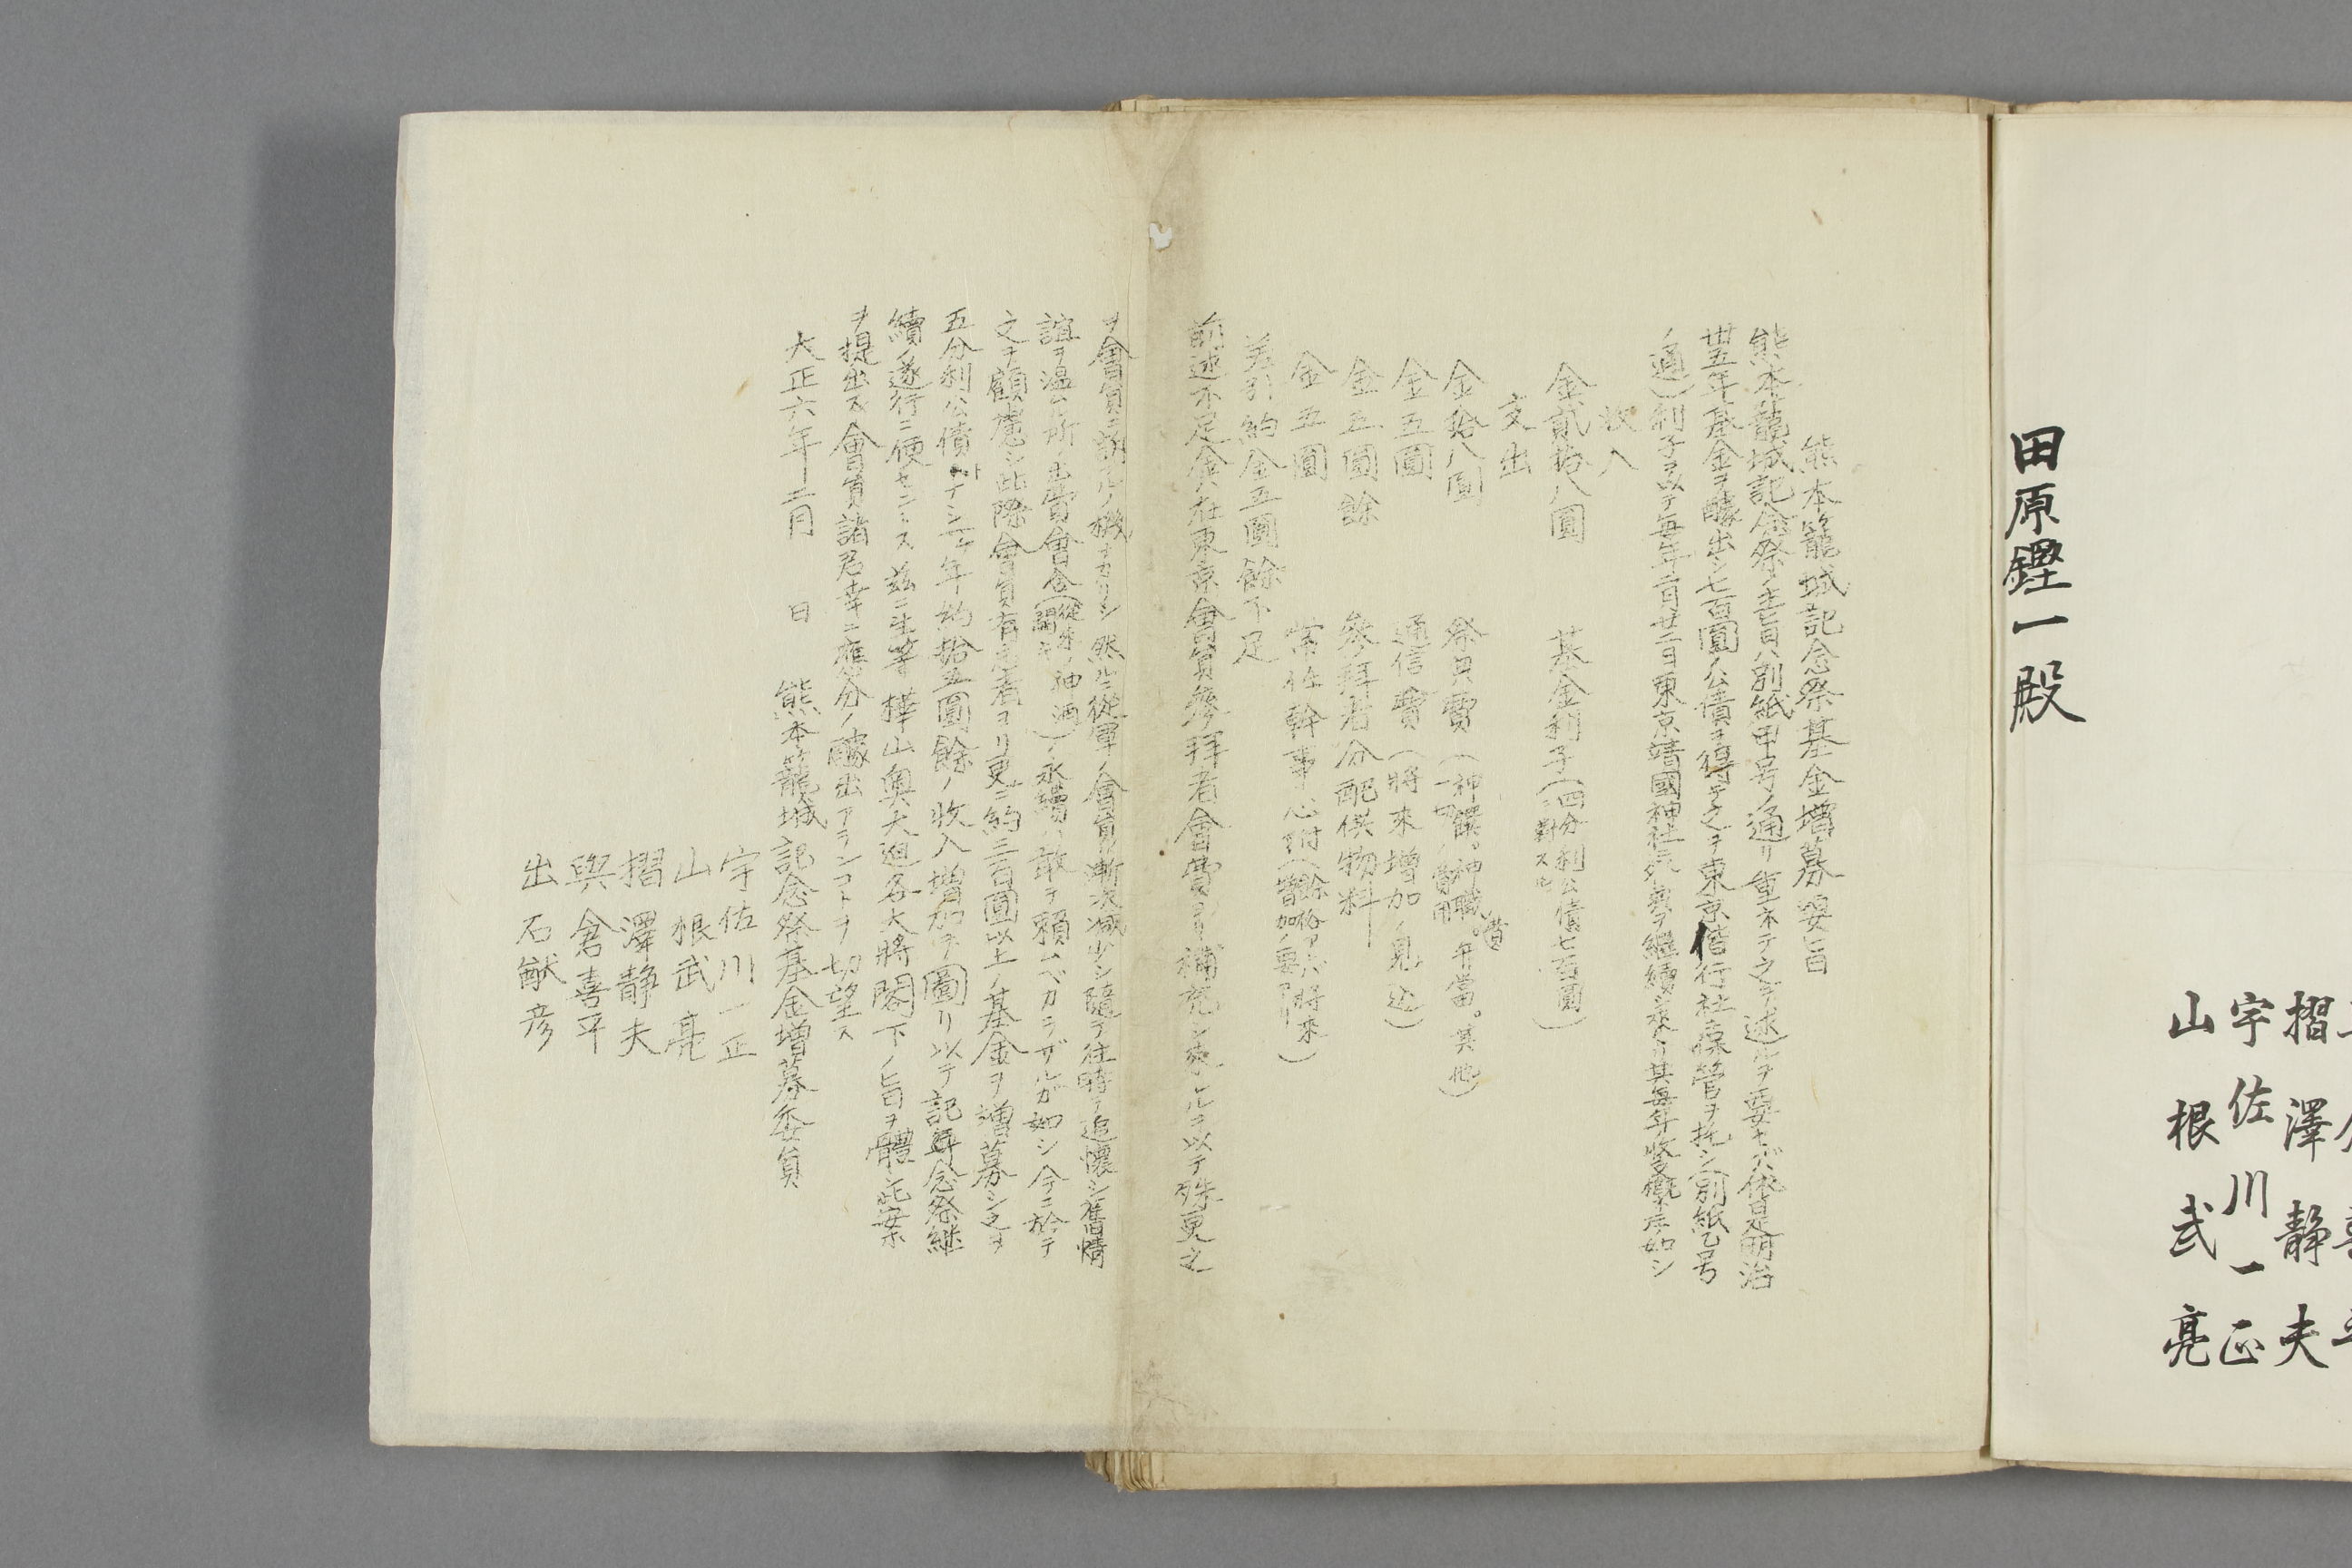 摺澤静夫
宇佐川一正
山根武亮
田原鏗一殿
熊本籠城記念祭基金増募要旨
熊本籠城記念祭ノ主旨ハ別紙甲号ノ通リ重ネテ之ヲ述ルヲ要セズ依是明治
卅五年基金ヲ醵出シ七百圓ノ公債ヲ得テ之ヲ東京偕行社保管ヲ托シ(別紙乙号
ノ通)利子ヲ以テ毎年二月廿二日東京靖國神社祭典ヲ継續シ来リ其毎年収支概左ノ如シ
收入
金貳拾八圓 基金利子(四分利公債七百圓ニ對スル)
支出
金拾八圓 祭具費(神饌。神職。弁當。其他一切ノ費用)
金五圓 通信費(將來増加ノ見込)
金五圓餘 參拜者分配供物料
金五圓 常任幹事心附(餘裕アレバ將來増加ノ要アリ)
差引約金五圓餘不足
前述不足金ハ在東京會員參拜者會費ヨリ補充シ来ルヲ以テ殊更之
ヲ會員ニ謀ルノ機ナカリシ然ルニ從軍ノ會員ハ漸次減少シ隨テ往時ヲ追懐シ舊情
誼ヲ温ムル所ノ出席會合(從来ノ神酒)ノ永續ハ敢テ頼ムベカラザルガ如シ今ニ於テ
之ヲ顧慮シ此際會員有志者ヨリ更ニ約三百圓以上ノ基金ヲ増募シ之ヲ
五分利公債トナシ一ケ年約拾五圓餘ノ收入増加ヲ圖リ以テ記念祭継
續ノ遂行ニ便セントス茲ニ生等樺山奥大迫各大將閣下ノ旨ヲ體シ此案ホ
ヲ提出ス會員諸君幸ニ應分ノ醵出アランコトヲ切望ス
大正六年二月 日 熊本籠城記念祭基金増募委員
宇佐川一正
山根武亮
摺澤静夫
與倉喜平
出石猷彦